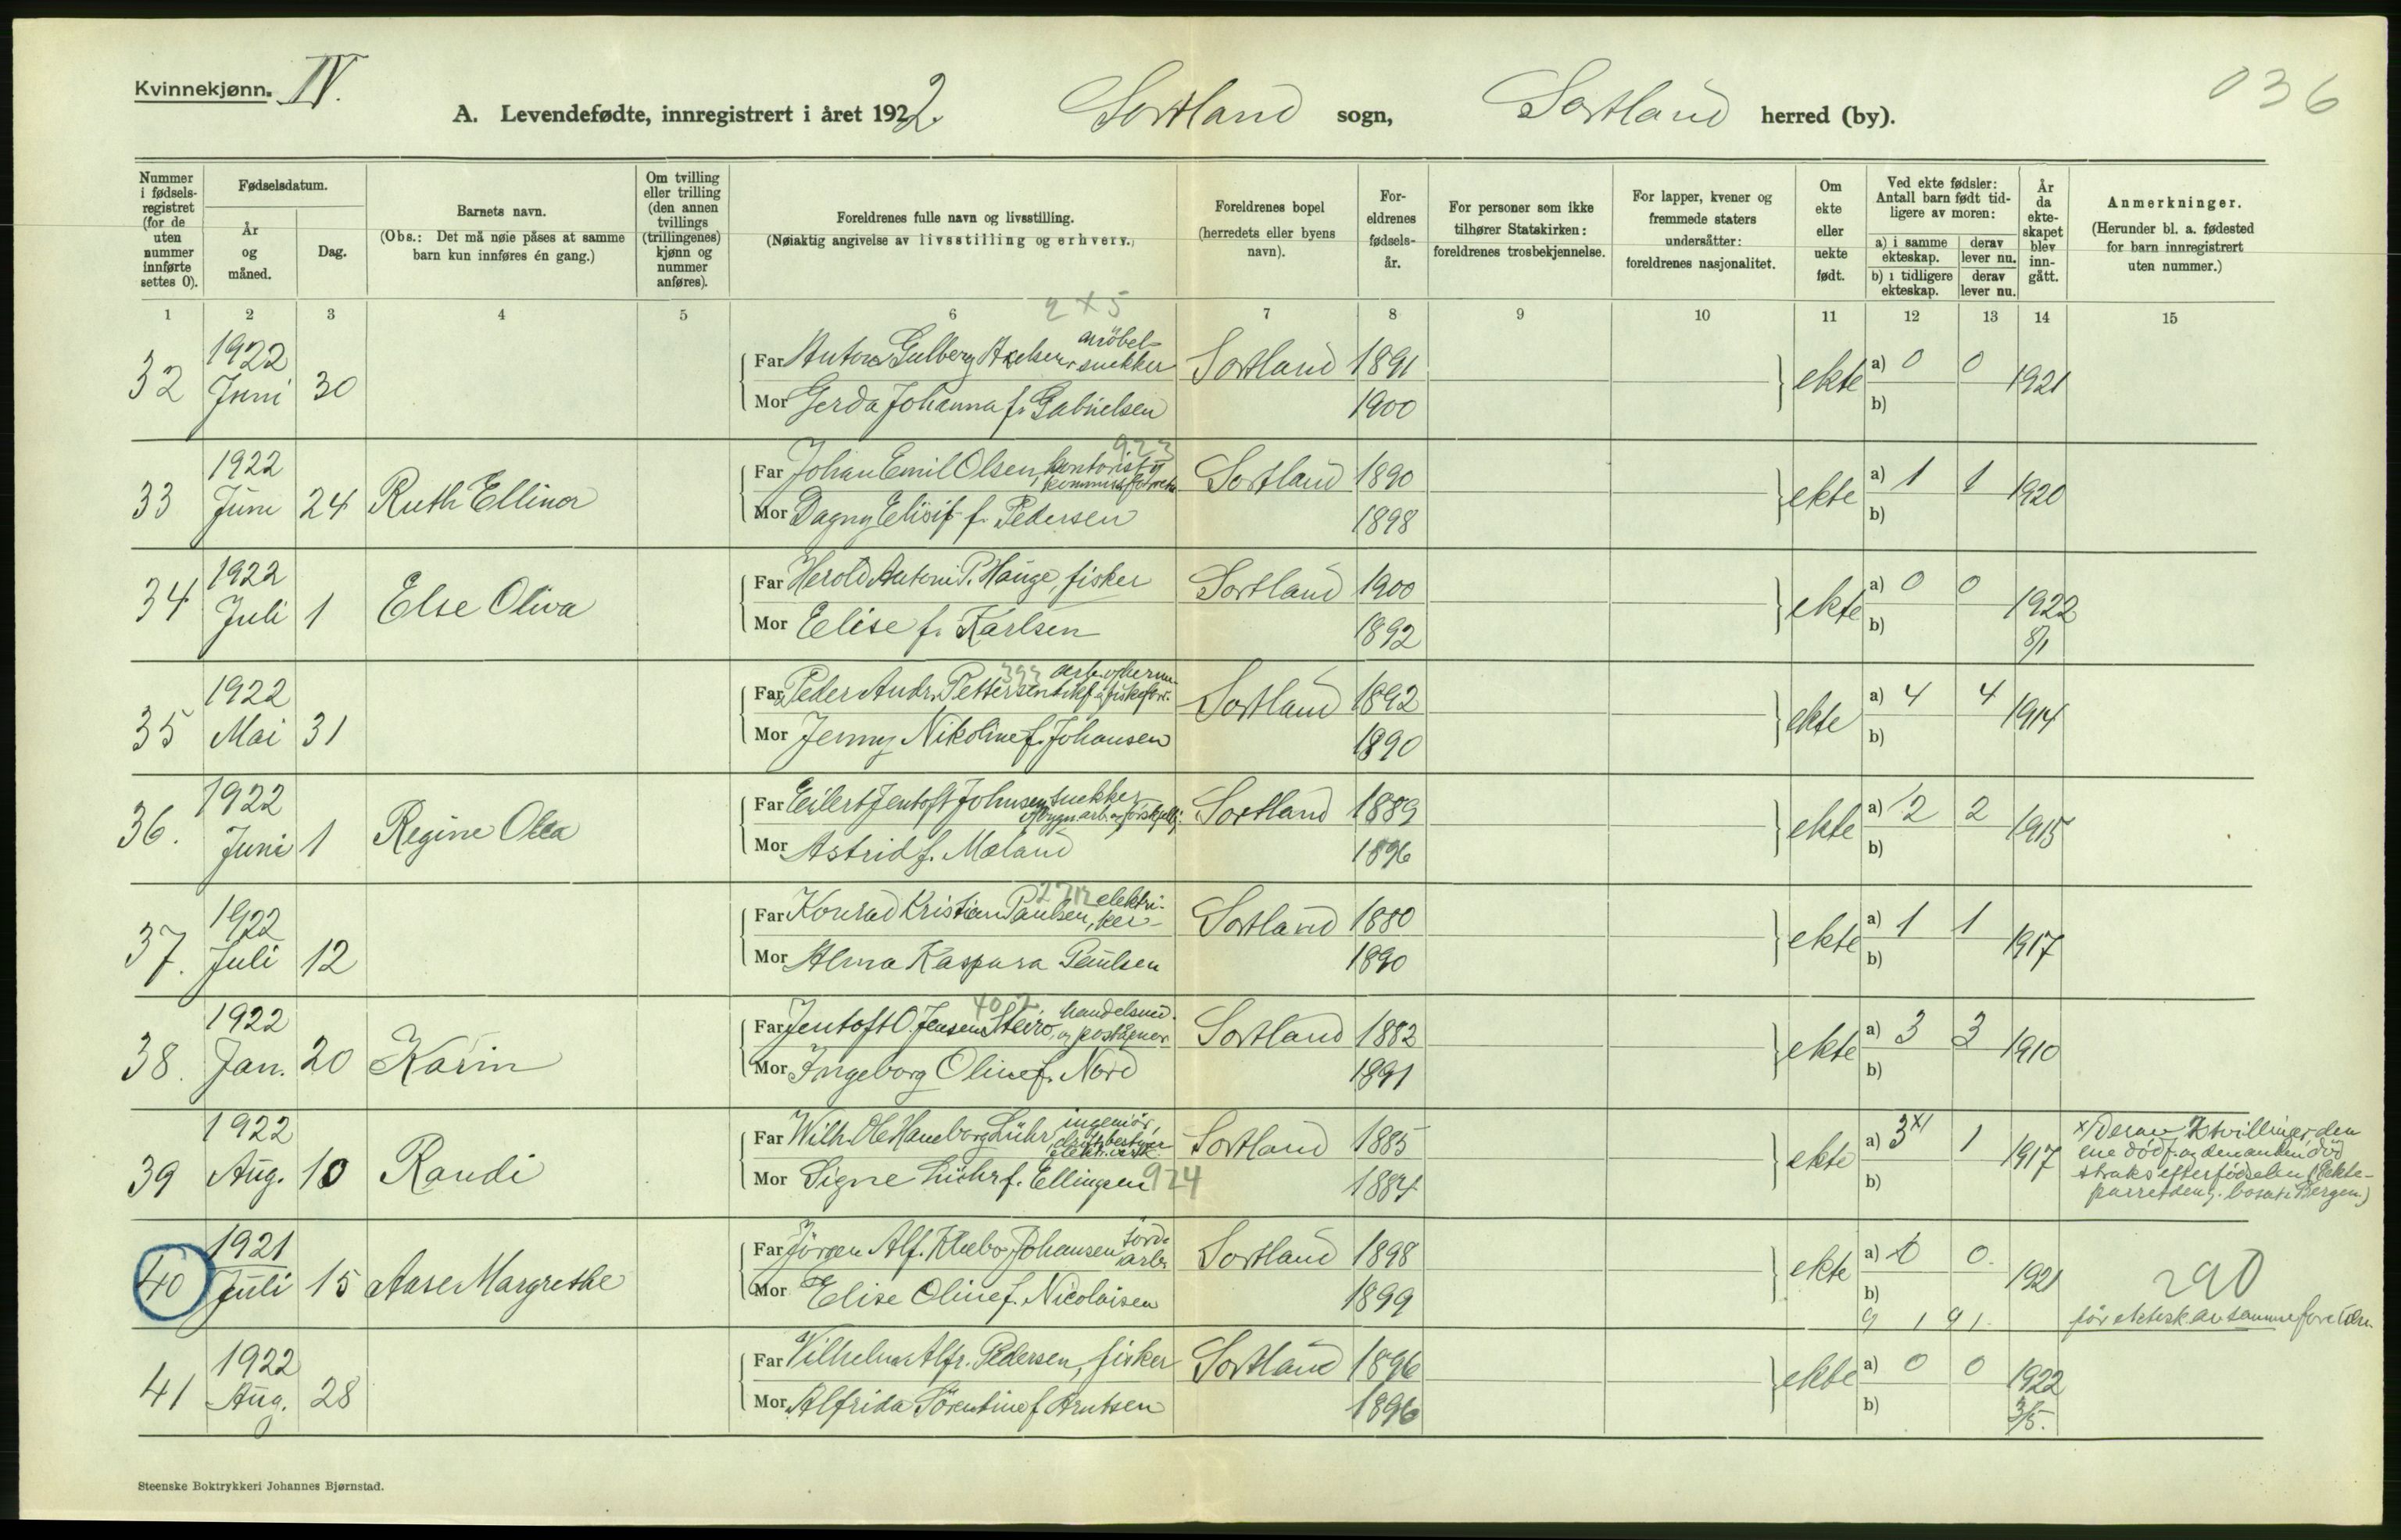 Kvinnekjønn. IV.
036
A. Levendefødte, innregistrert i året 1922. Sortland sogn, Sortland herred (by).
Nummer i fødselsregistret (for de uten nummer innførte settes 0).
Fødselsdatum.
År og måned.
Dag.
Barnets navn.
(Obs.: Det må nøie påses at samme barn kun innføres én gang.)
Om tvilling eller trilling (den annen tvillings (trillingenes) kjønn og nummer anføres).
Foreldrenes fulle navn og livsstilling.
(Nøiaktig angivelse av livsstilling og erhverv.)
Foreldrenes bopel (herredets eller byens navn).
Foreldrenes fødselsår.
For personer som ikke tilhører Statskirken: foreldrenes trosbekjennelse.
For lapper, kvener og fremmede staters undersåtter: foreldrenes nasjonalitet.
Om ekte eller uekte født.
Ved ekte fødsler: Antall barn født tidligere av moren:
a) i samme ekteskap. derav lever nu.
b) i tidligere ekteskap. derav lever nu.
År da ekteskapet blev inngått.
Anmerkninger.
(Herunder bl. a. fødested for barn innregistrert uten nummer.)
1 2 3 4 5 6 7 8 9 10 11 12 13 14 15
2 x 5
32 1922 Juni 30 Far Anton Gulberg Axelsen, møbelsnekker Sortland 1891 ekte a) 0 0 1921
Mor Gerda Johanna f. Gabrielsen 1900 b)
923
33 1922 Juni 24 Ruth Ellinor Far Johan Emil Olsen, kontorist Sortland 1890 ekte a) 1 1 1920
Mor Dagny Elisif f. Pedersen 1898 b)
34 1922 Juli 1 Else Oliva Far Herold Antoni P. Hauge, fisker Sortland 1900 ekte a) 0 0 1922 8/1
Mor Elise f. Karlsen 1892 b)
35 1922 Mai 31 Far Peder Andr. Pettersen Sortland 1892 ekte a) 4 4 1914
Mor Jenny Nikoline f. Johansen 1890 b)
36. 1922 Juni 1 Regine Olea Far Eilert Jentoft Johnsen, snekker Sortland 1889 ekte a) 2 2 1915
Mor Astrid f. Mæland 1896 b)
37. 1922 Juli 12 Far Konrad Kristian Paulsen, elektriker Sortland 1880 ekte a) 1 1 1917
Mor Alma Kaspara Paulsen 1890 b)
402
38. 1922 Jan. 20 Karin Far Jentoft O. Jensen Steiro, handelsm. og poståpner Sortland 1882 ekte a) 3 3 1910
Mor Ingeborg Oline f. Nord 1891 b)
39 1922 Aug. 10 Randi Far Wilh. Ole Haneborg Lühr, ingeniør, driftsbestyrer elektr. verk Sortland 1885 ekte a) 3 x) 1 1917 x) Derav 2 tvillinger, den
ene død f. og den anden död
straks efter fødselen (Ekteparret den g. bosatt i Bergen.)
Mor Signe Lühr f. Ellingsen 924 1884 b)
40 1921 Juli 15 Aase Margrethe Far Jörgen Alf. Klæbo Johansen jordarb. Sortland 1898 ekte a) 0 0. 1921 290
Mor Elise Oline f. Nicolaisen 1899 b) 9 1 9 1. før ektesk. av samme foreldre.
41 1922 Aug. 28 Far Vilhelm Alfr. Pedersen, fisker Sortland 1896 ekte a) 0 0 1922 3/5.
Mor Alfrida Sörentine f Arntsen 1896 b)
Steenske Boktrykkeri Johannes Bjørnstad.